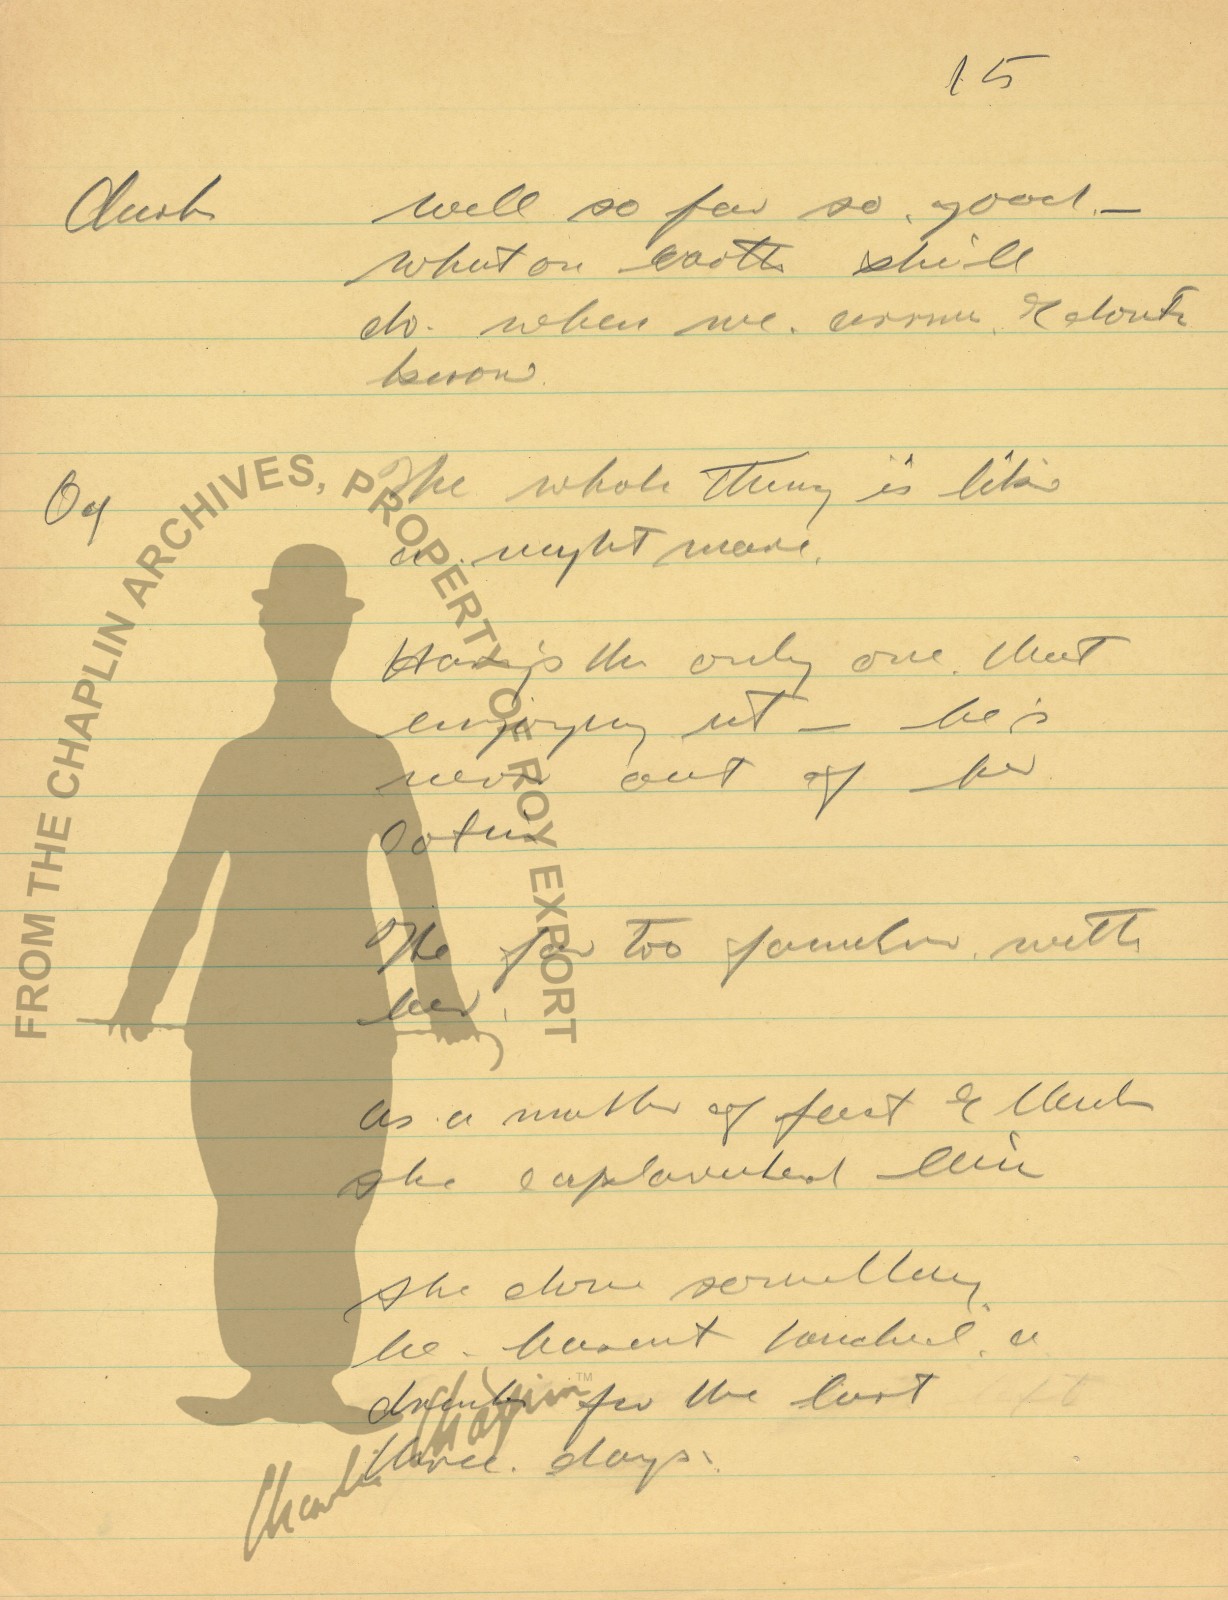 15
Clark well so far so good. —
what on earth she'll
do. when we. arrive. I dont
know.
Og The whole thing is like
a. night mare.
is the only one. that
enjoying it — he's
never out of her

The far too familiar. with
her.
as a matter of fact I think
she him
she done something.
he. havent touched. a
drink for the last
three. days.
FROM THE CHAPLIN ARCHIVES, PROPERTY OF ROY EXPORT
Charlie Chaplin™